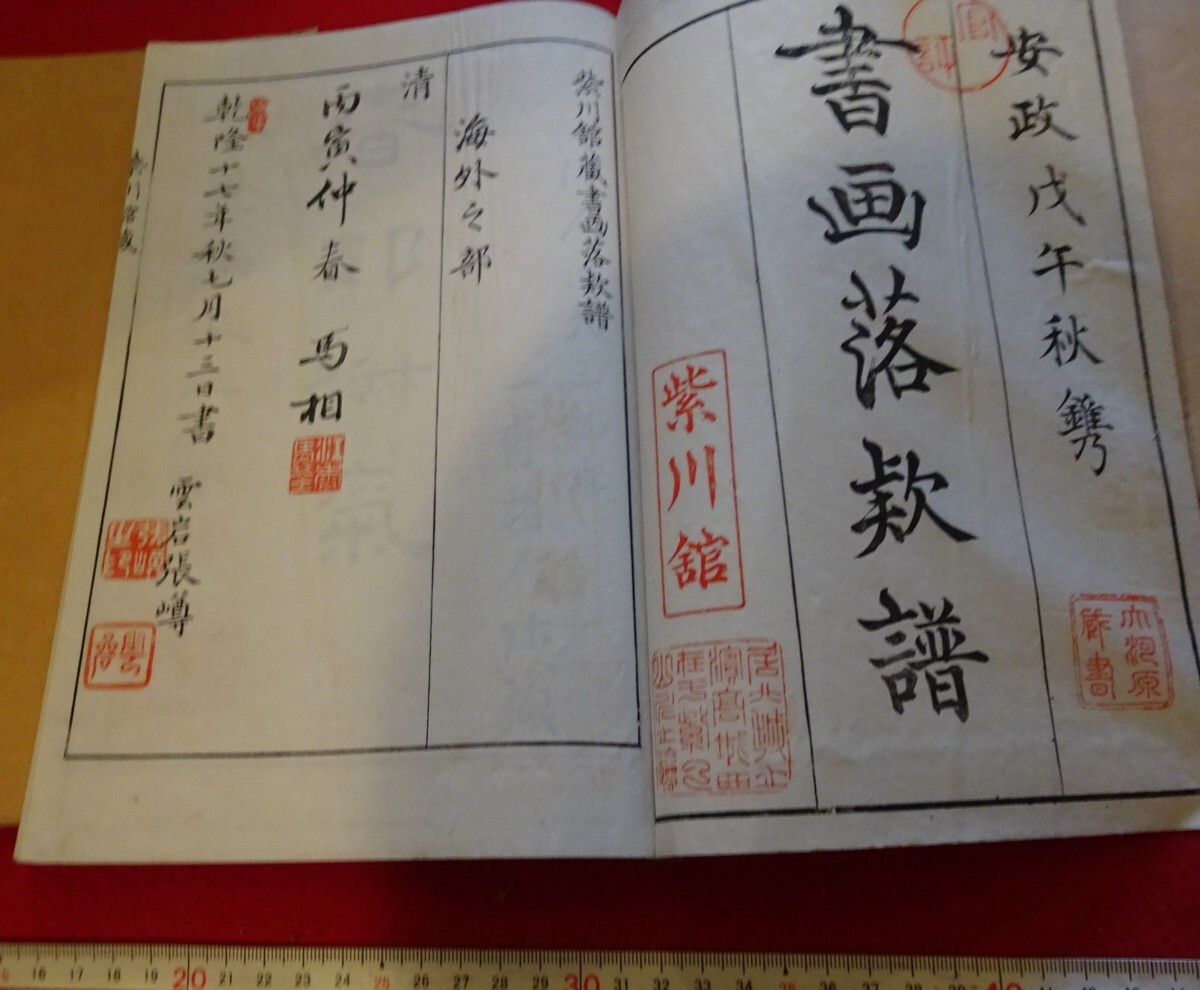 安政戊午秋鐫
官許
書画落款譜
紫川館
紫川館蔵書画落款譜
海外之部
清
丙寅仲春 馬相
乾隆十七年秋七月十三日書 雲岩張嶟
16 17 18 19 20 21 22 23 24 25 26 27 28 29 30 31 32 33 34 35 36 37 38 39 40